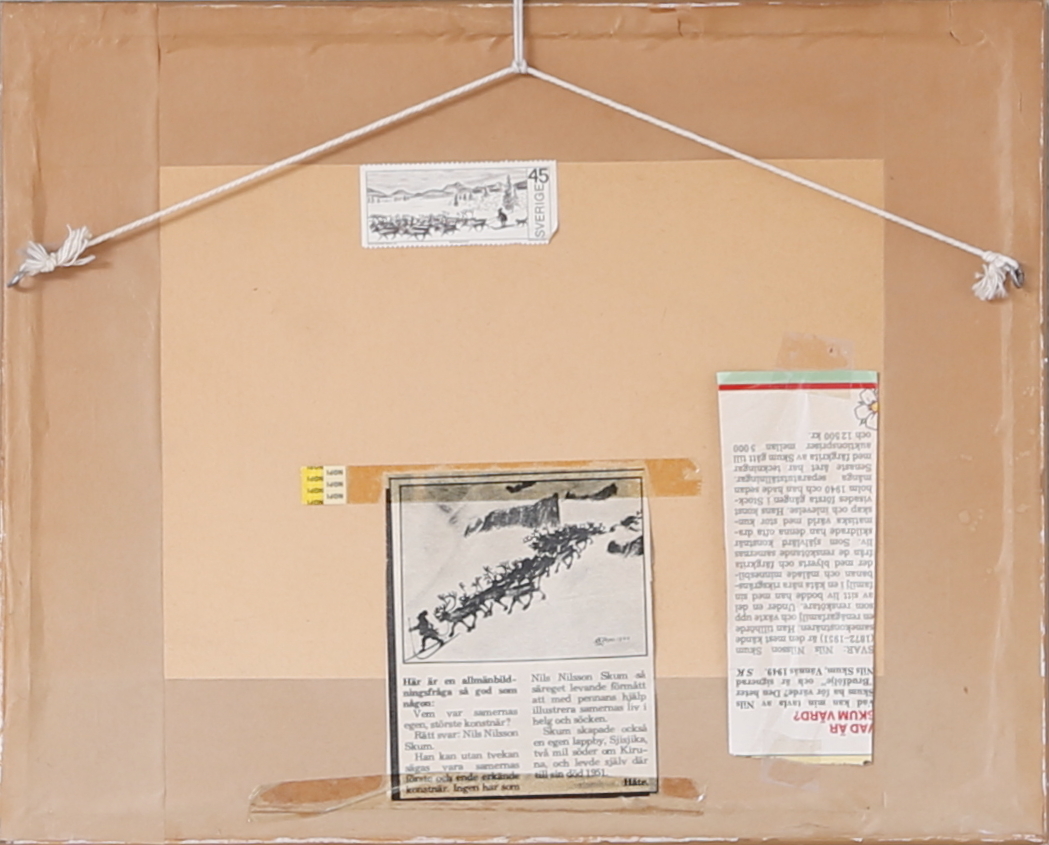 45
SVERIGE
NOPI
NOPI
NOPI
NOPI
NOPI
NOPI
NOPI
NOPI
Här är en allmänbild-
ningsfråga så god som
någon:
Vem var samernas
egen, störste konstnär?
Rätt svar: Nils Nilsson
Skum.
Han kan utan tvekan
sägas vara samernas
förste och ende erkände
konstnär. Ingen har som
Nils Nilsson Skum så
säreget levande förmått
att med pennans hjälp
illustrera samernas liv i
helg och söcken.
Skum skapade också
en egen lappby, Sjisjika,
två mil söder om Kiru-
na, och levde själv där
till sin död 1951.
Håte.
VAD ÄR
SKUM VÄRD?
Vad kan min tavla av Nils
Skum ha för värde? Den heter
"Brudfölje" och är signerad
Nils Skum, Vännäs 1949. S K
SVAR: Nils Nilsson Skum
(1872–1951) är den mest kände
samekonstnären. Han tillhörde
en renägarfamilj och växte upp
som renskötare. Under en del
av sitt liv bodde han med sin
familj i en kåta nära riksgräns-
banan och målade minnesbil-
der med blyerts och färgkrita
från de renskötande samernas
liv. Som självlärd konstnär
skildrade han denna ofta dra-
matiska värld med stor kun-
skap och inlevelse. Hans konst
visades första gången i Stock-
holm 1940 och han hade sedan
många separatutställningar.
Senaste året har teckningar
med färgkrita av Skum gått till
auktionspriser mellan 5 000
och 12 500 kr.